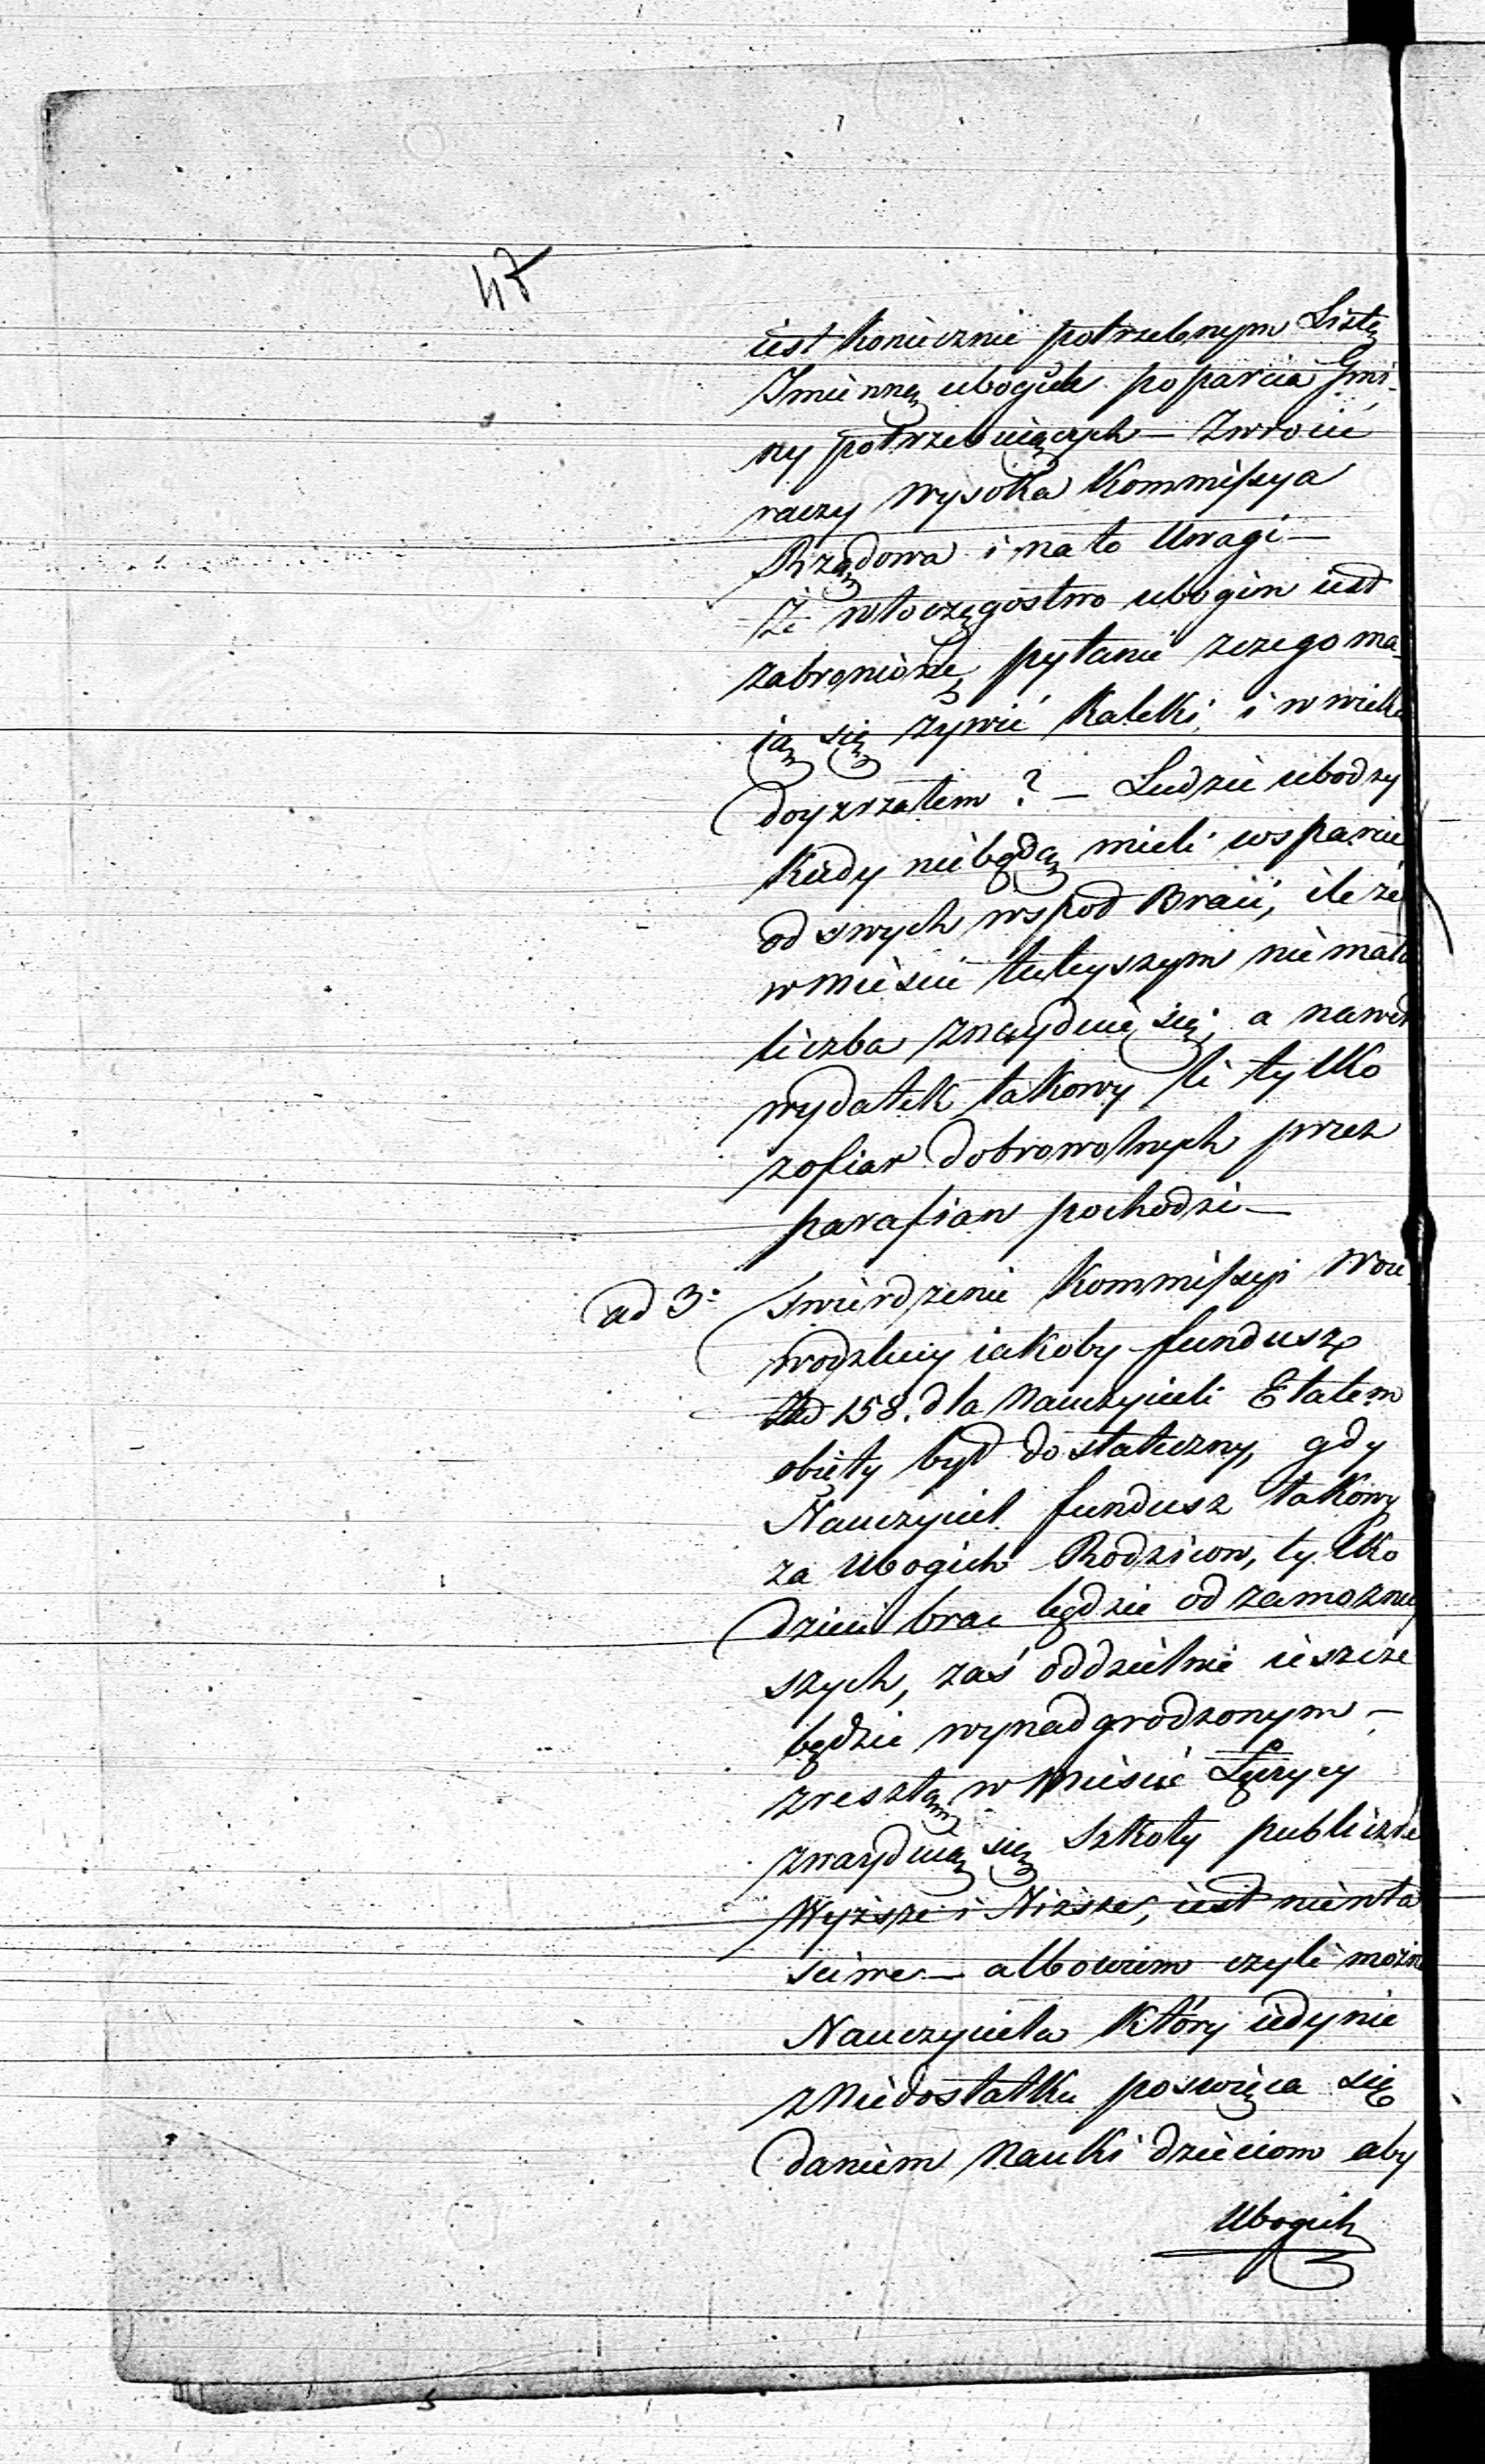 47
iest koniecznie potrzebnym Listę
Imienną ubogich poparcia Gmi-
ny potrzebuiących — Zwrócić
raczy Wysoka Kommissya
Rządowa i na to Uwagi —
Że włoczęgostwo ubogim iest
zabronione, pytanie zczego ma-
ią się żywić Kaleki, i w wieku
doyzrzałem? — Ludzie ubodzy
kiedy niebędą mieli wsparcie
od swych wspoł Braci, ile że
w Mieście tuteyszym nie mała
liczba znayduie się, a nawet
wydatek takowy li tylko
z ofiar dobrowolnych przez
parafian pochodzi —
ad 3º Twierdzenie Kommissyi Woie-
wodzkiey iakoby fundusz
Złł 158. dla Nauczycieli Etatem
obięty był dostateczny, gdy
Nauczyciel fundusz takowy
za Ubogich Rodziców, tylko
dzieci brac będzie od zamoznie
szych, zaś oddzielnie ieszcze
będzie wynadgrodzonym —
zresztą w Mieście Łęczycy
znayduią się Szkoły publiczne
Wyższe i Niższe, iest niewła
sciwe — albowiem czyli można
Nauczyciela który iedynie
z Niedostatku poswięca się
daniem Nauki dzieciom aby
Ubogich